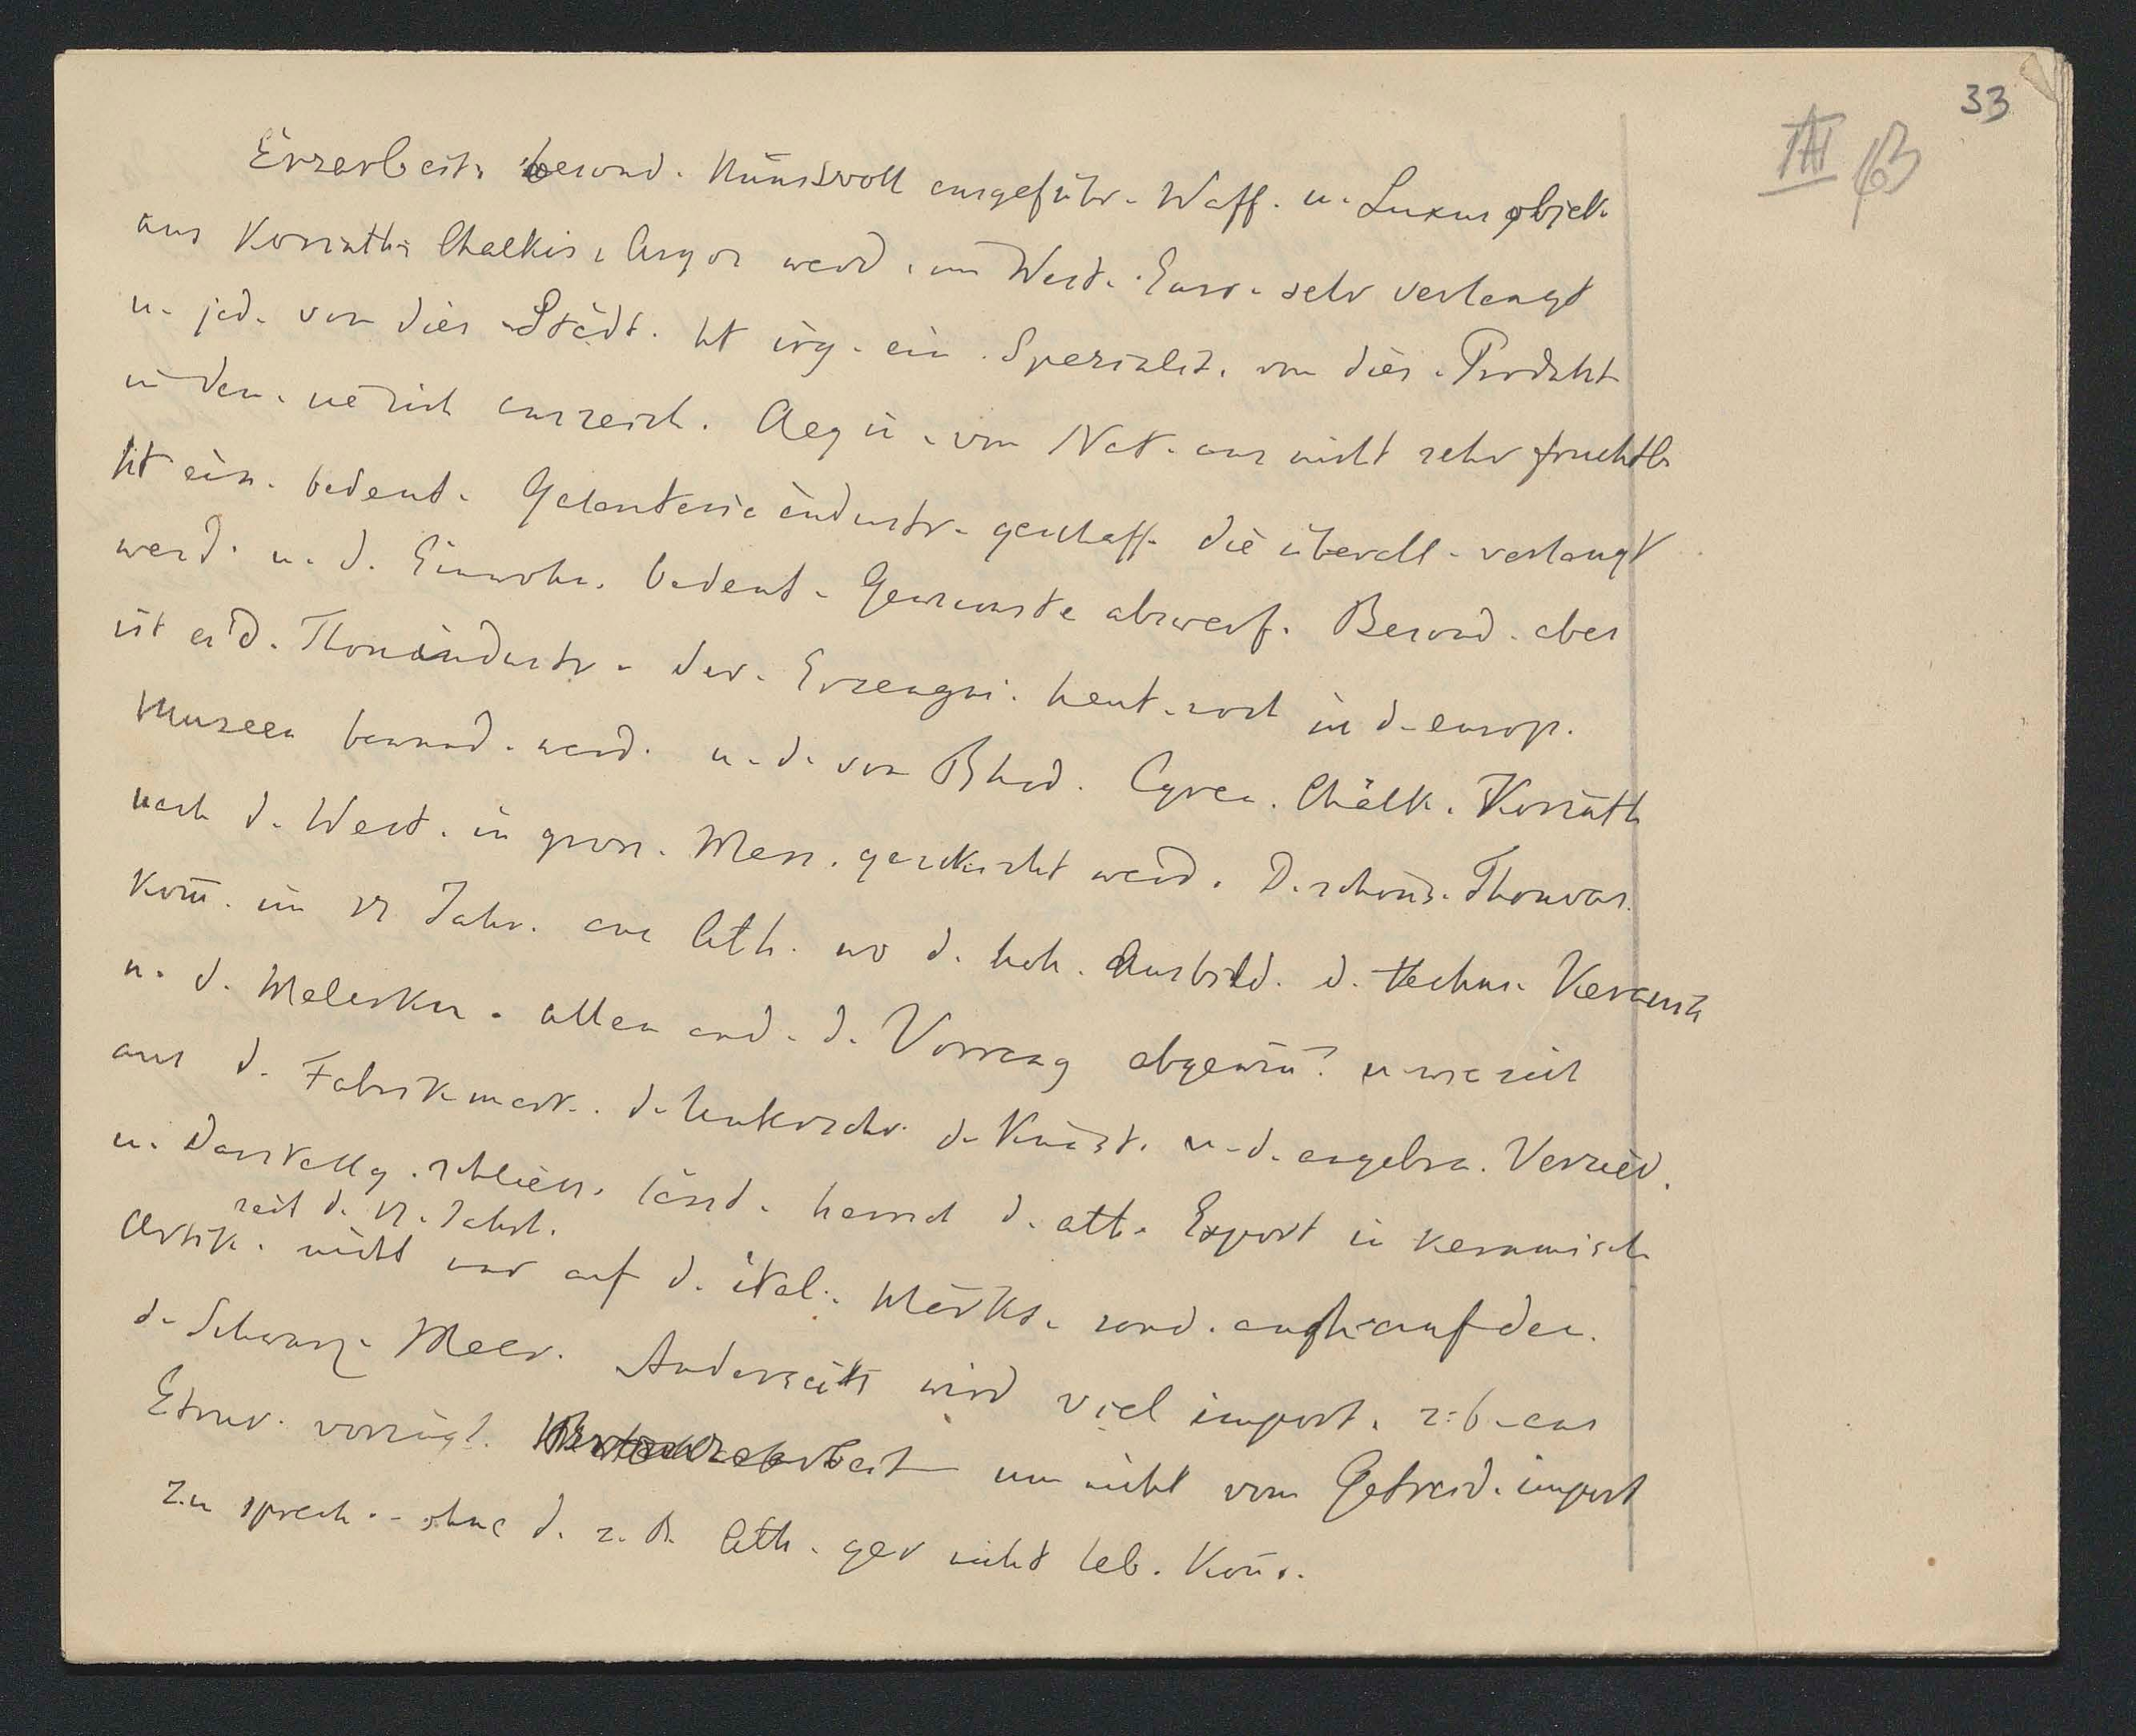 33
III 63
Erzarbeit. besond. kunstvoll ausgeführ. Waff. u. Luxusobjek.
aus Korinth, Chalkis, Argos werd. im West. Euro. sehr verlangt
u. jed. von dies. Städt. ht irg. ein. Spezialit. von dies. Produkt
in den. sie sich auszeich. Aegi. von Nat. aus nicht sehr fruchtb.
ht ein. bedeut. Galanterieindustr. geschaff. die überall verlangt
werd. u. d. Einwohn. bedeut. Gewinnste abwerf. Besond. aber
ist es d. Thonindustr. der. Erzeugni. heut. noch in d. europ.
Museen bewund. werd. u. d. von Rhod. Cyren. Chalk. Korinth
nach d. West. in gross. Mass. geschickt werd. D. schöns. Thonvas.
kom̅. im Jahr. aus Ath. wo d. hoh. Ausbild. d. techn. Keramik
u. d. Malerkun. allen and. d. Vorrang abgewin̅t u. wie sich
aus d. Fabrikmark. d. Unterschr. d. Künst. u. d. angebra. Verzier.
u. Darstellg. schliess. lässt. herrscht d. att. Export in keramisch.
seit d. Jahrh.
Artik. nicht nur auf d. ital. Märkt. sond. auch auf den.
d. Schwarz. Meer. Anderseits wird viel import. z. b. aus
Etrur. vorzügl. um nicht vom Getreid. import
zu sprech. - ohne d. z. B. Ath. gar nicht leb. kön̅.